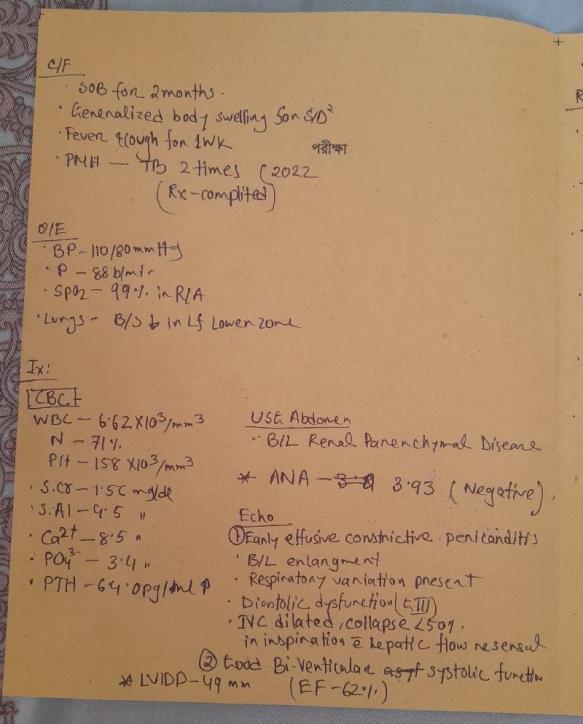 C/F
· SOB for 2 months.
· Generalized body swelling for 5/D²
· Fever cough for 1WK
পরীক্ষা
· PMH — TB 2 times (2022
(Rx-complited)
O/E
· BP - 110/80 mmHg
· P - 88 b/min
· SpO2 - 99% in R/A
· Lungs - B/S ↓ in Lf Lower zone
R
Ix:
CBC
WBC - 6.62 X10³/mm³
N - 71%
Plt - 158 X10³/mm³
· S.Cr - 1.56 mg/dl
· S.Al - 4.5 "
· Ca2+ - 8.5 "
· PO4 3- - 3.4 "
· PTH - 64.0 pg/ml
USG Abdomen
· B/L Renal Parenchymal Disease
* ANA - 3.93 (Negative).
Echo
① Early effusive constrictive pericarditis
· B/L enlangment
· Respiratory variation present
· Diastolic dysfunction (III)
· IVC dilated, collapse <50%.
in inspiration c̄ hepatic flow resersal
② Good Bi-venticular systolic function
(EF-62%)
* LVIDD - 49 mm